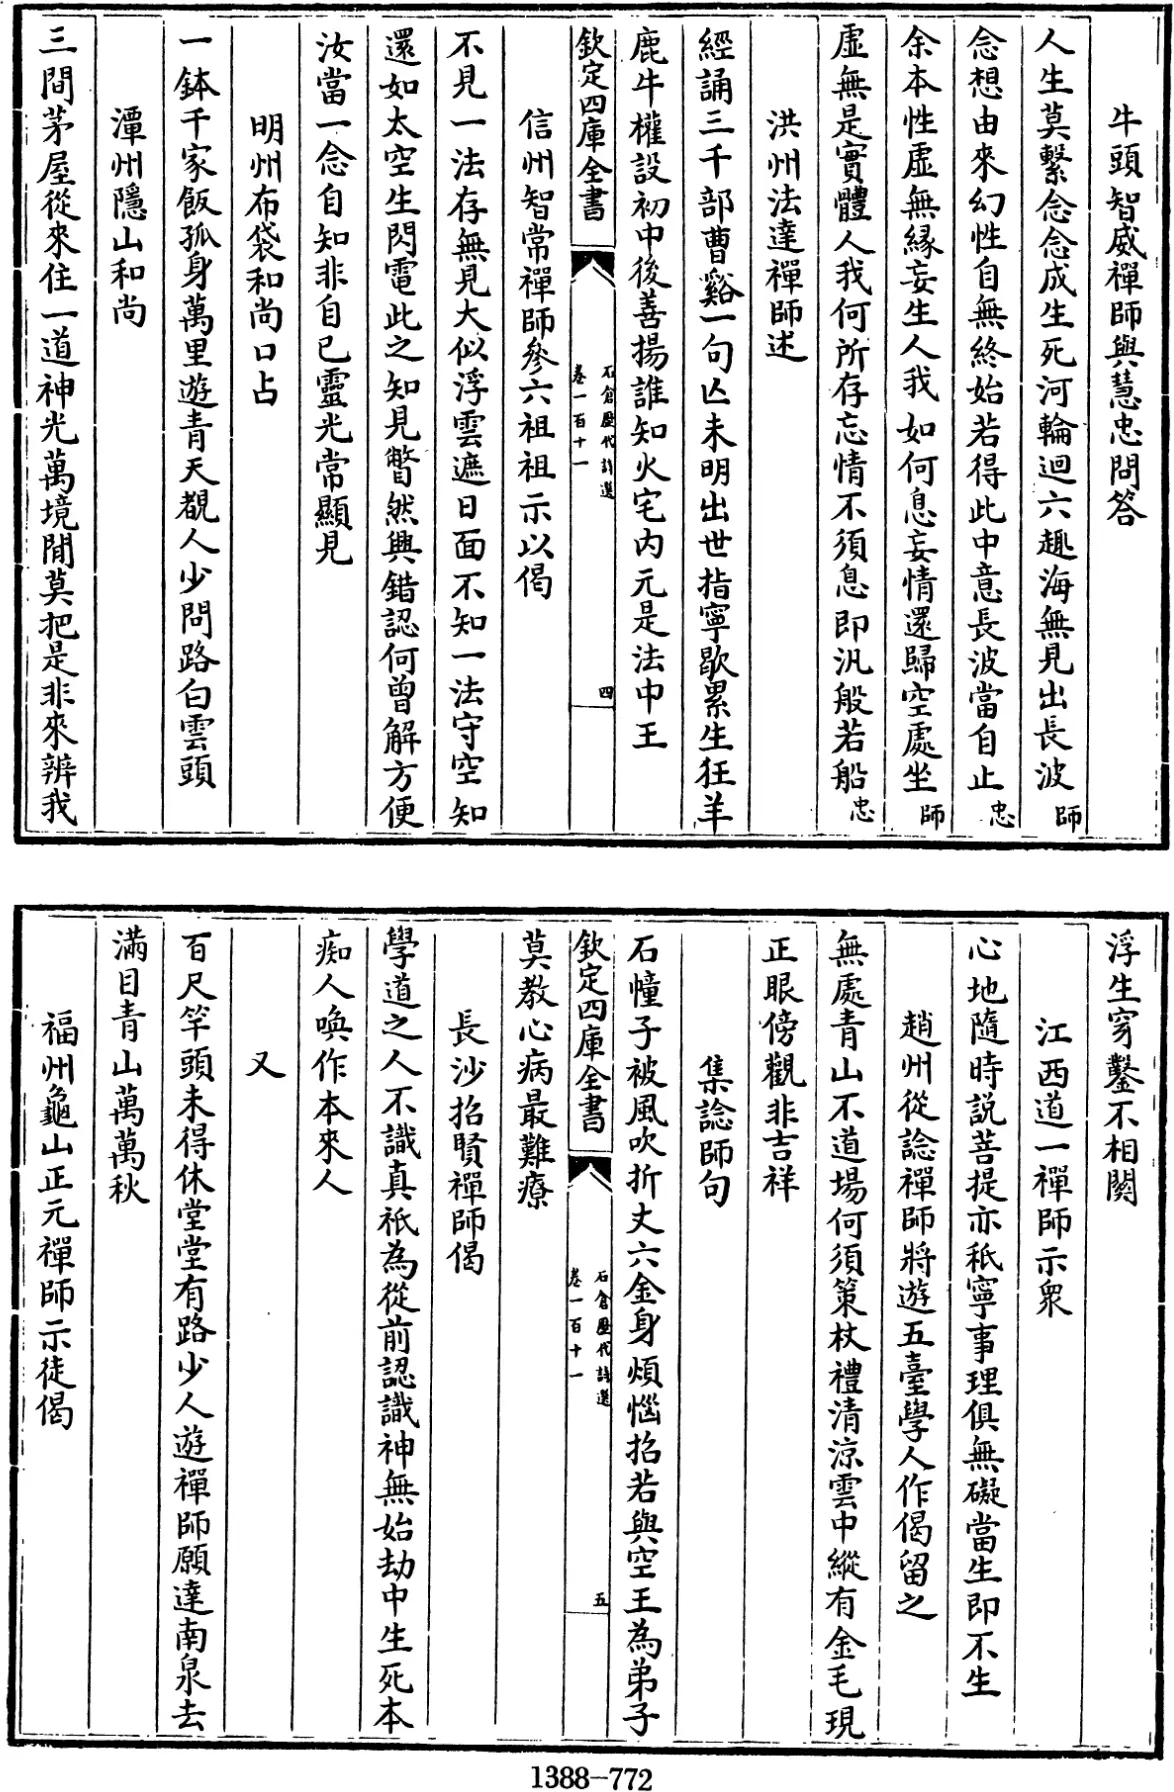 牛頭智威禪師與慧忠問答
人生莫繫念念成生死河輪迴六趣海無見出長波師
念想由來幻性自無終始若得此中意長波當自止忠
余本性虛無緣妄生人我如何息妄情還歸空處坐師
虛無是實體人我何所存忘情不須息即汎般若船忠
洪州法達禪師述
經誦三千部曹谿一句亡未明出世指寧歇累生狂羊
鹿牛權設初中後善揚誰知火宅内元是法中王
欽定四庫全書
石倉歷代詩選
卷一百十一
四
信州智常禪師參六祖祖示以偈
不見一法存無見大似浮雲遮日面不知一法守空知
還如太空生閃電此之知見瞥然興錯認何曾解方便
汝當一念自知非自已靈光常顯見
明州布袋和尚口占
一鉢千家飯孤身萬里遊青天覩人少問路白雲頭
潭州隱山和尚
三間茅屋從來住一道神光萬境閒莫把是非來辨我
浮生穿鑿不相關
江西道一禪師示衆
心地隨時説菩提亦秪寧事理俱無礙當生即不生
趙州從諗禪師將遊五臺學人作偈留之
無處青山不道場何須策杖禮清涼雲中縱有金毛現
正眼傍觀非吉祥
集諗師句
石幢子被風吹折丈六金身煩惱招若與空王為弟子
欽定四庫全書
石倉歷代詩選
卷一百十一
五
莫教心病最難療
長沙招賢禪師偈
學道之人不識真祇為從前認識神無始劫中生死本
痴人喚作本來人
又
百尺竿頭未得休堂堂有路少人遊禪師願達南泉去
滿目青山萬萬秋
福州龜山正元禪師示徒偈
1388-772